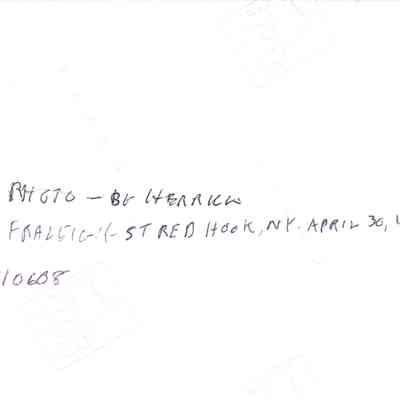 PHOTO - BY HERRICK
FRALEIGH ST RED HOOK, NY. APRIL 30,
10608